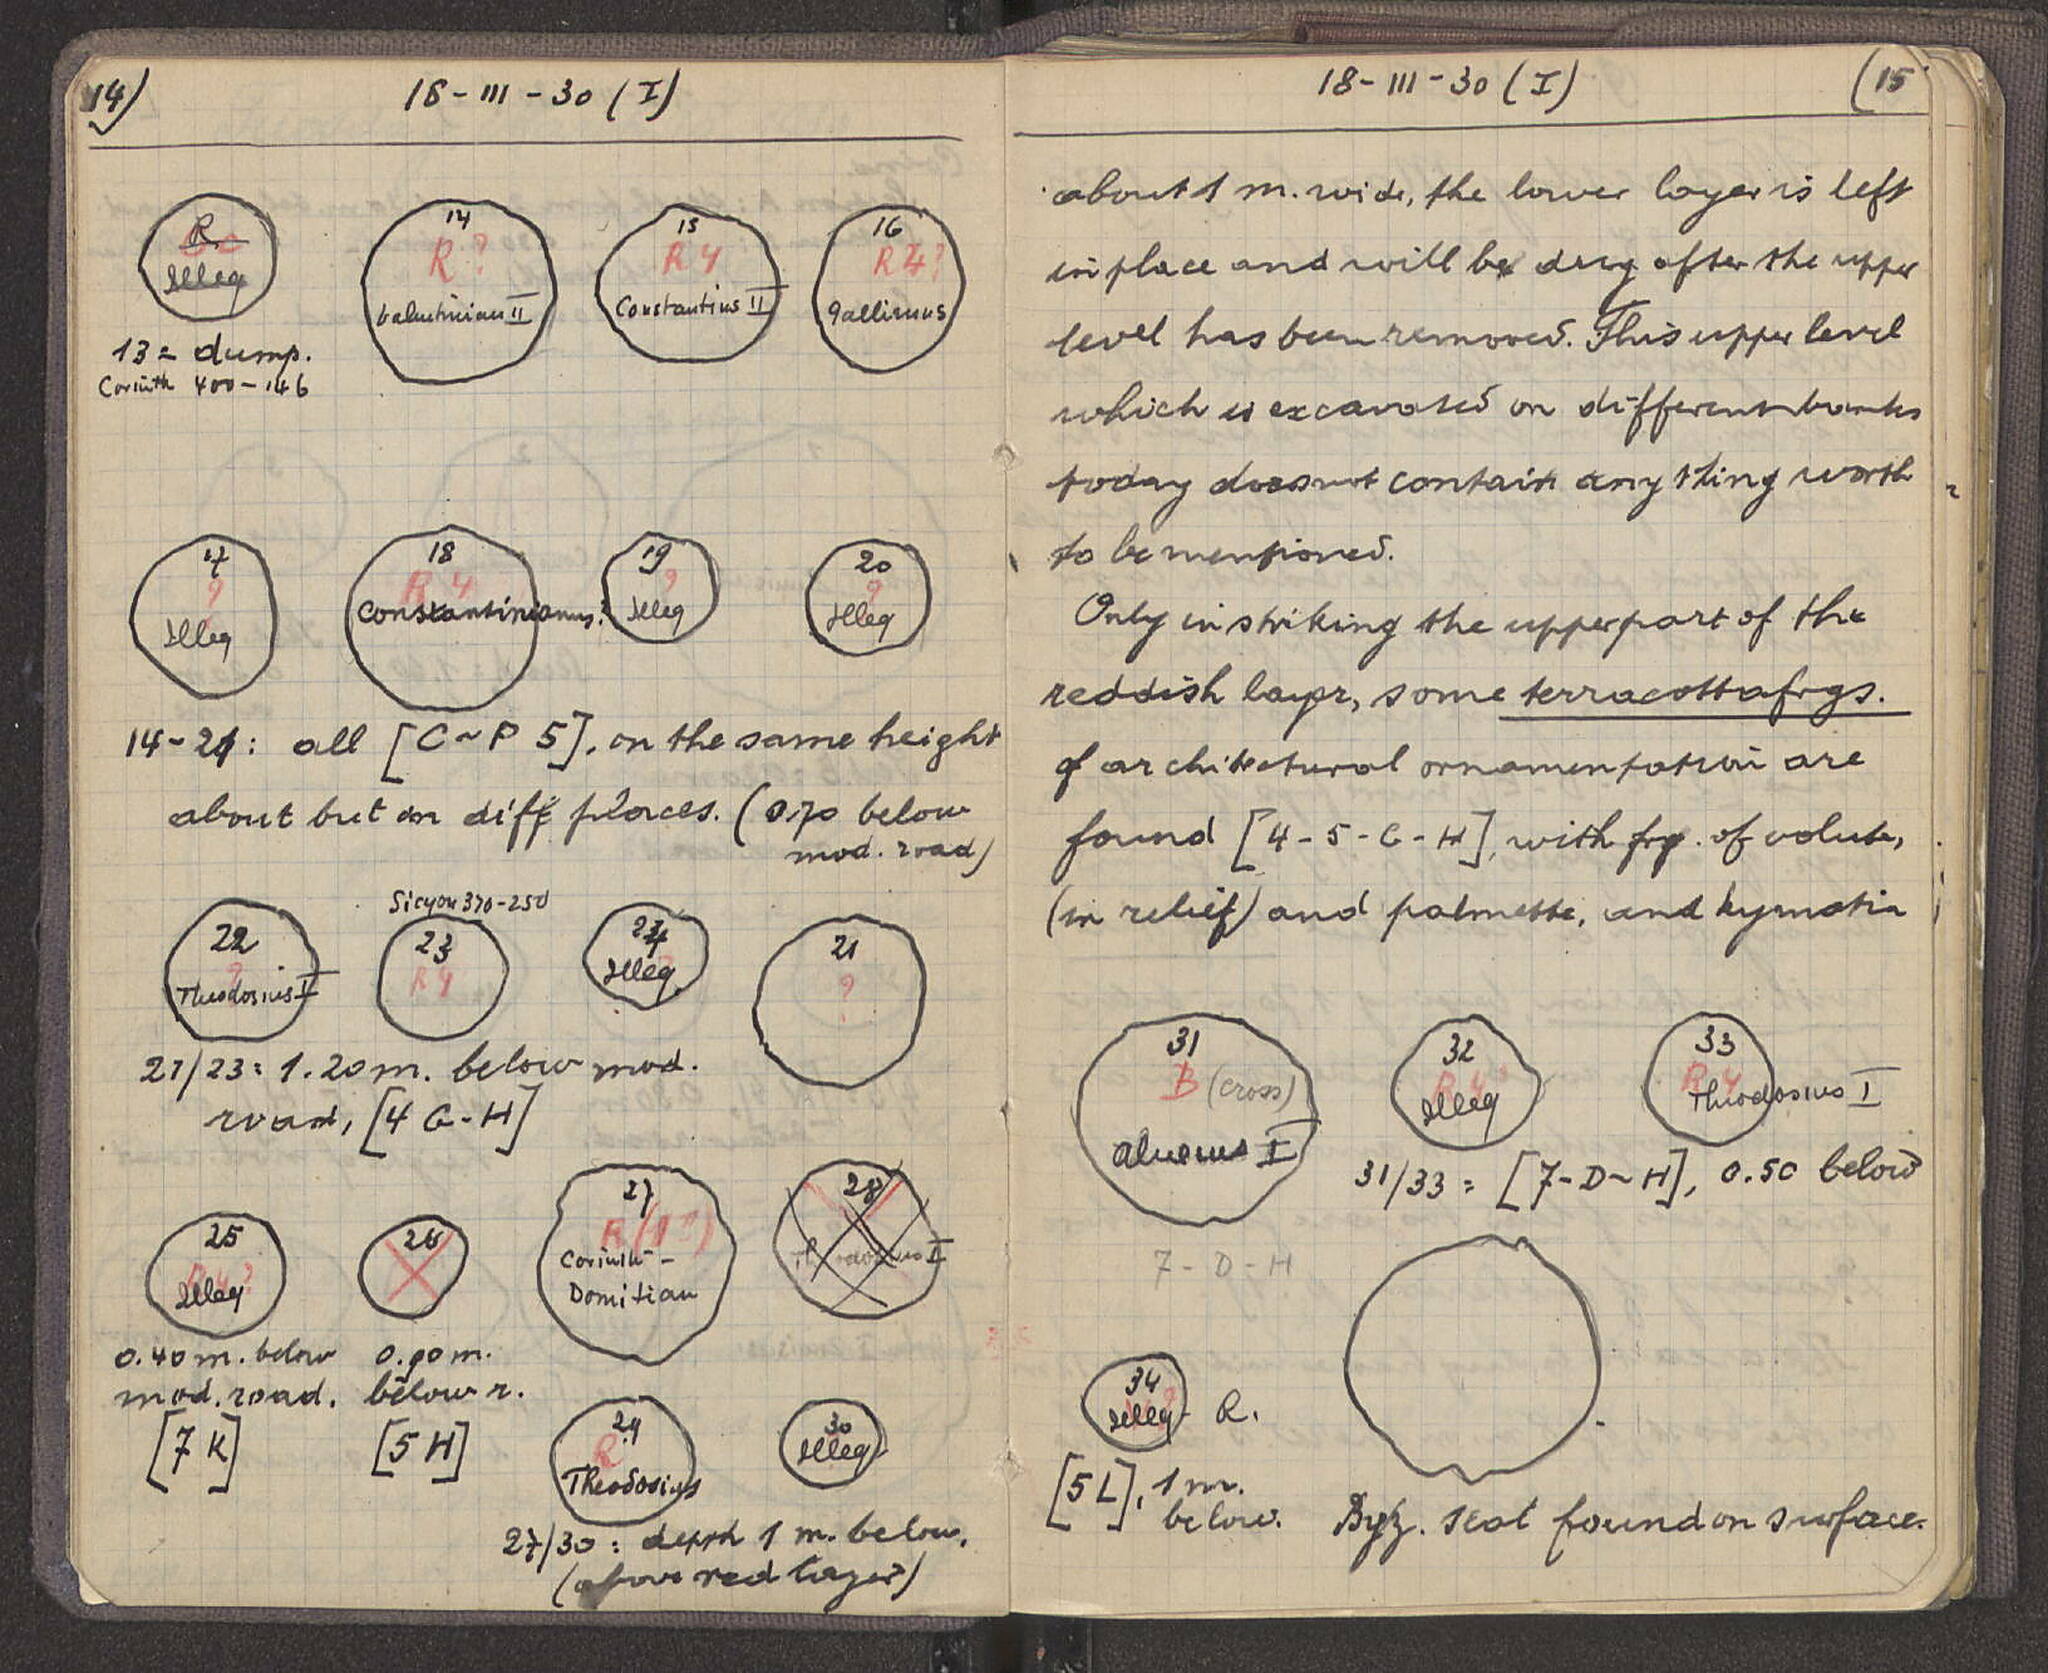 14)
18-III-30 (I)
R
Illeg
13 = dump.
Corinth 400-146
14
R ?
Valentinian II
15
R 4
Constantius II
16
R 4?
Gallienus
17
?
Illeg
18
R 4
Constantinianus?
19
?
Illeg
20
?
Illeg
14-21: all [C~P 5], on the same height
about but on diff places. (0.70 below
mod. road)
22
?
Theodosius I
Sicyon 370-250
23
R 4
24
Illeg
21
?
21/23 = 1.20 m. below mod.
road, [4 G-H]
25
Illeg
0.40 m. below
mod. road.
[7 K]
26
0.90 m.
below r.
[5 H]
27
R (1")
Corinth -
Domitian
28
Theodosius I
29
R
Theodosius
30
Illeg
27/30 = depth 1 m. below,
(above red layer)
18-III-30 (I)
(15
about 1 m. wide, the lower layer is left
in place and will be dug after the upper
level has been removed. This upper level
which is excavated on different banks
today does not contain any thing worth
to be mentioned.
Only in striking the upper part of the
reddish layer, some terracotta frgs.
of architectural ornamentation are
found [4-5-G-H], with frg. of volute,
(in relief) and palmette, and kymatia
31
B (cross)
I
32
R 4?
Illeg
33
R 4
Theodosius I
31/33 = [7-D~H], 0.50 below
7-D-H
34
Illeg - R.
[5 L], 1 m.
below.
Byz. seal found on surface.